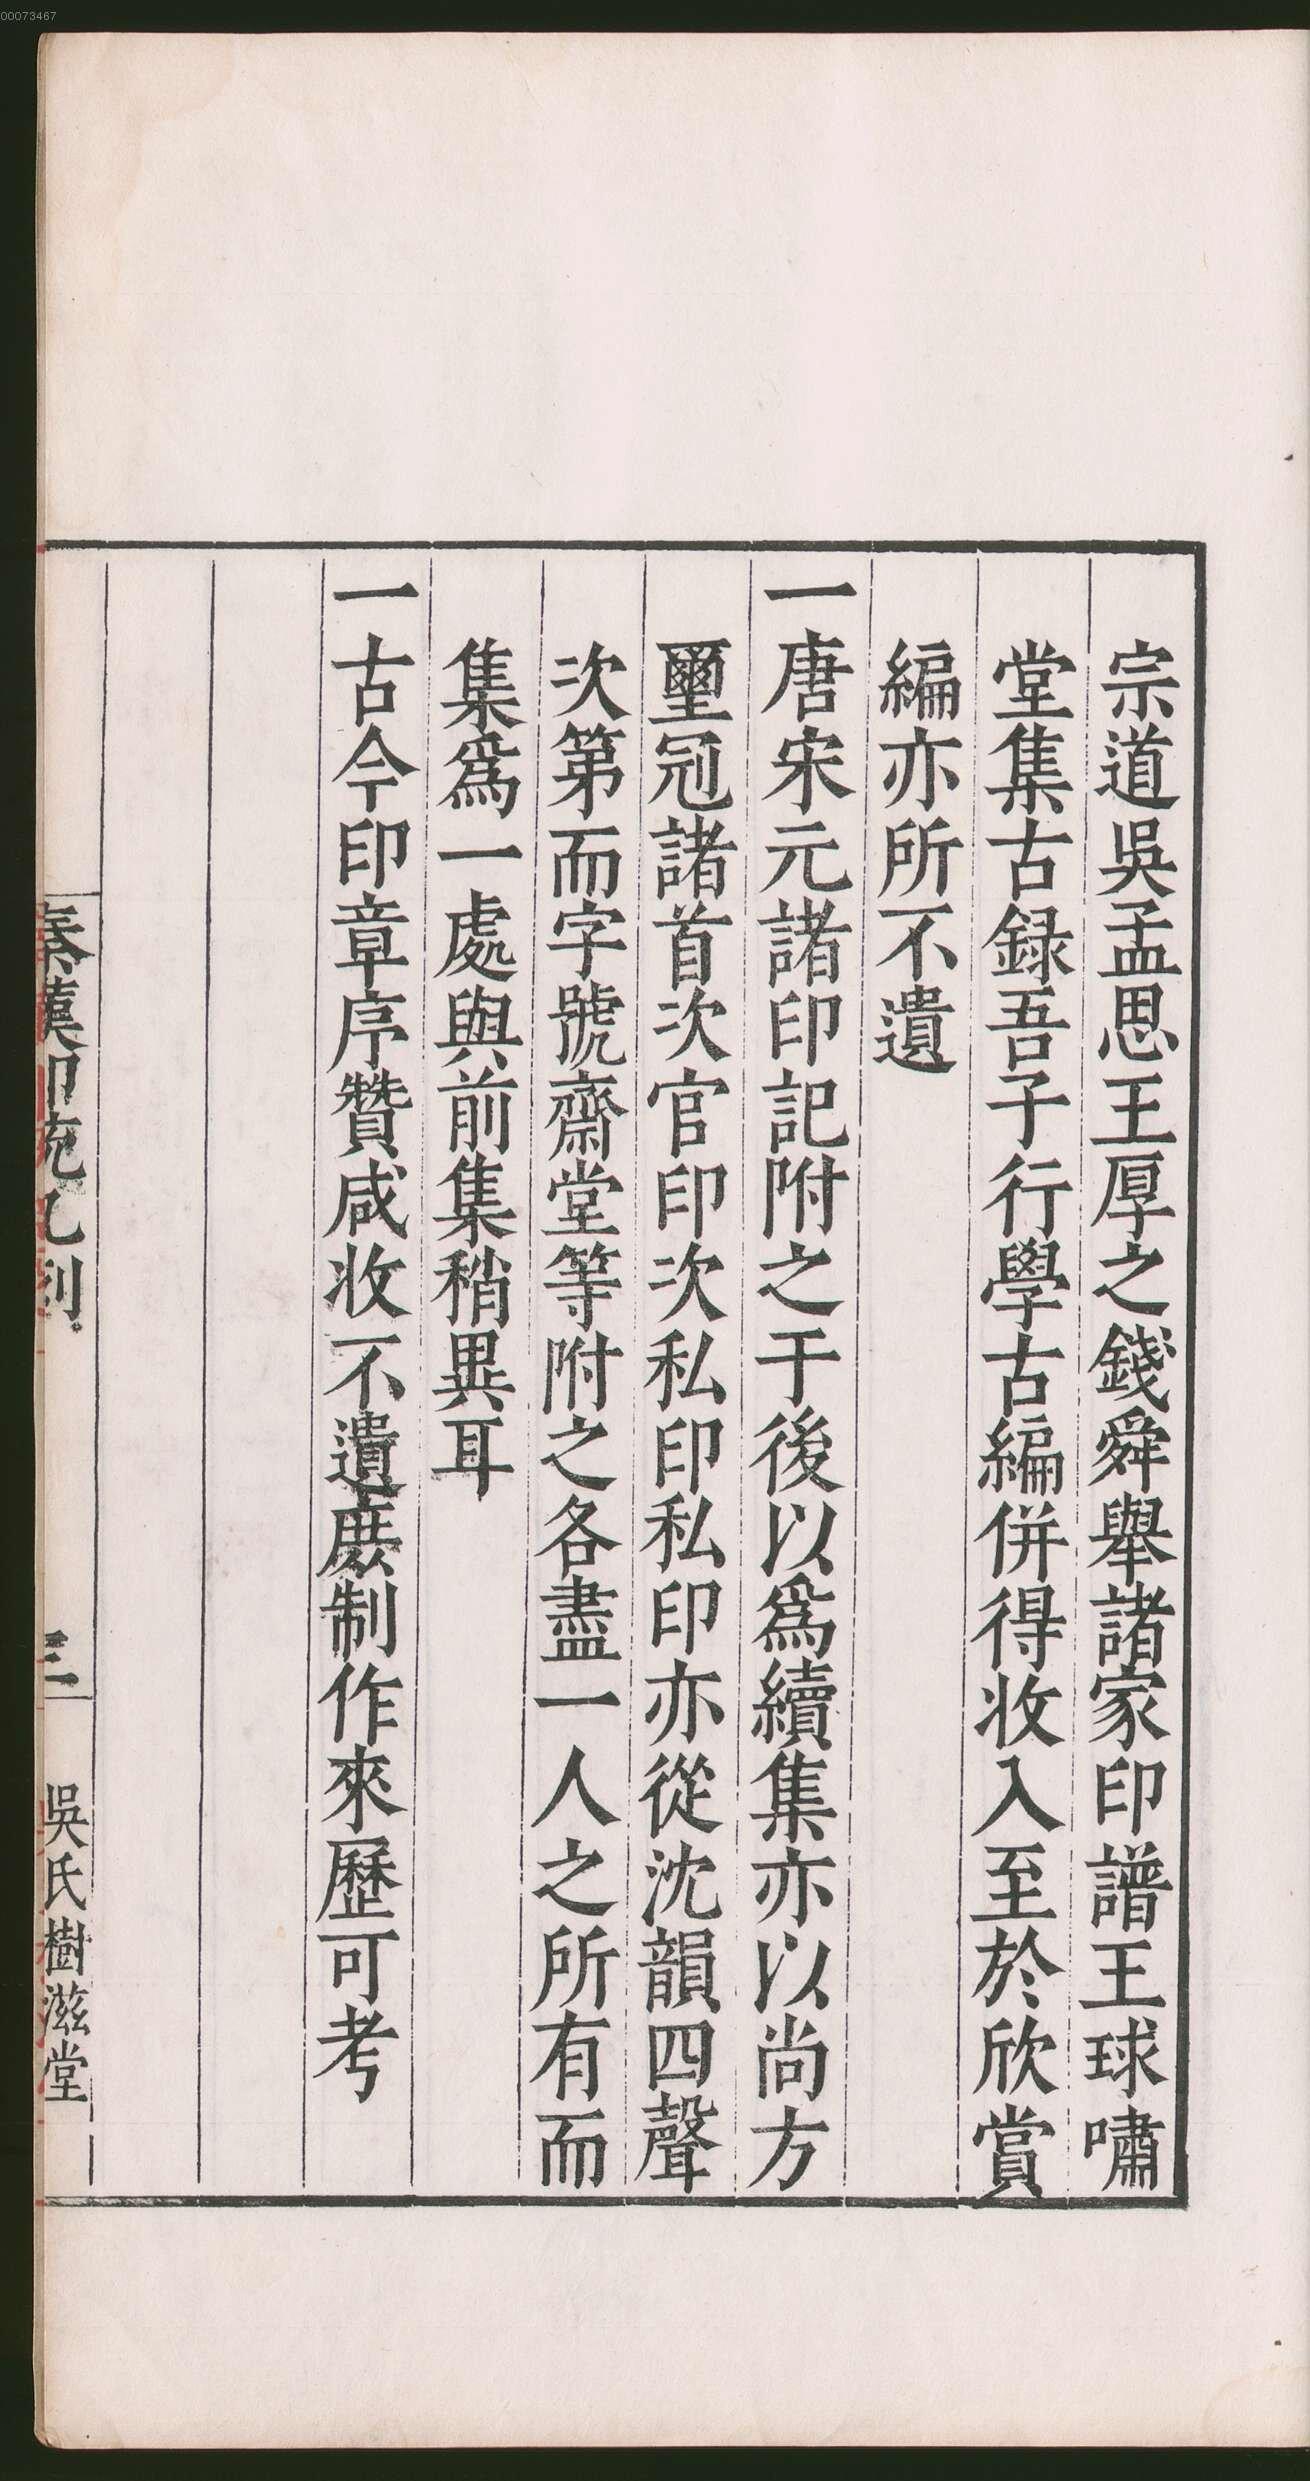 00073467
宗道吳孟思王厚之錢舜舉諸家印譜王球嘯
堂集古録吾子行學古編併得收入至於欣賞
編亦所不遺
一唐宋元諸印記附之于後以爲續集亦以尚方
璽冠諸首次官印次私印私印亦從沈韻四聲
次第而字號齋堂等附之各盡一人之所有而
集爲一處與前集稍異耳
一古今印章序贊咸收不遺庶制作來歷可考
秦漢印統凡例 三 吳氏樹滋堂